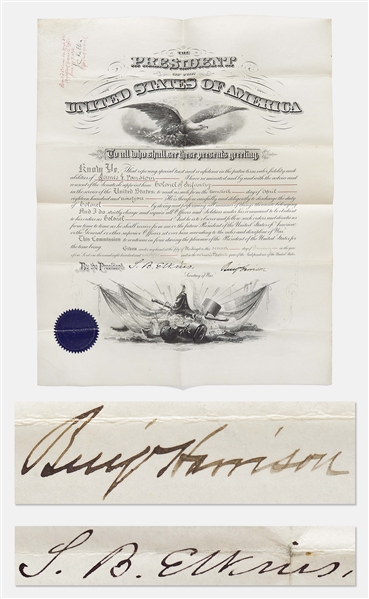 THE
PRESIDENT
OF THE
UNITED STATES OF AMERICA
To all who shall see these presents greeting:
Know Ye, That reposing special trust and confidence in the patriotism, valor, fidelity and
abilities of I have nominated and by and with the advice and
consent of the Senate do appoint him Colonel of Infantry
in the service of the United States to rank as such from the day of
eighteen hundred and He is therefore carefully and diligently to discharge the duty
of Colonel by doing and performing all manner of things thereunto belonging.
And I do strictly charge and require all Officers and Soldiers under his command to be obedient
to his orders as Colonel And he is to observe and follow such orders and directions
from time to time as he shall receive from me or the future President of the United States of America
or the General or other superior Officers set over him according to the rules and discipline of War.
This Commission to continue in force during the pleasure of the President of the United States for
the time being.
Given under my hand at the City of Washington this day of
in the year of our Lord one thousand eight hundred and and in the year of the Independence of the United States
By the President:
S. B. Elkins Benj Harrison
Secretary of War
Benj Harrison
S. B. Elkins,